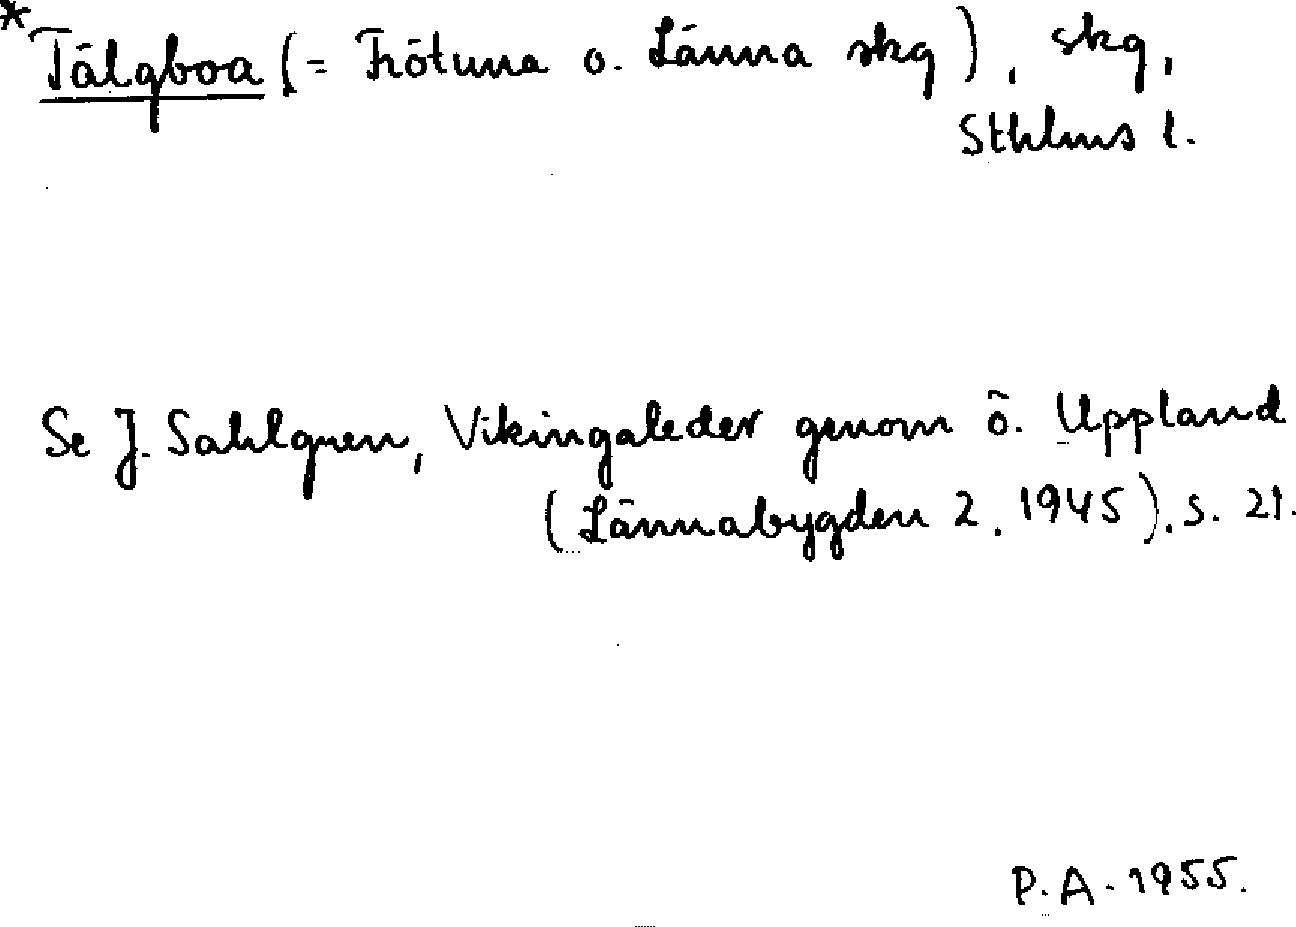 *Tälgboa (= Frötuna o. Länna skg), skg,
Sthlms l.
Se J. Sahlgren, Vikingaleder genom ö. Uppland
(Lännabygden 2. 1945). s. 21.
P. A. 1955.